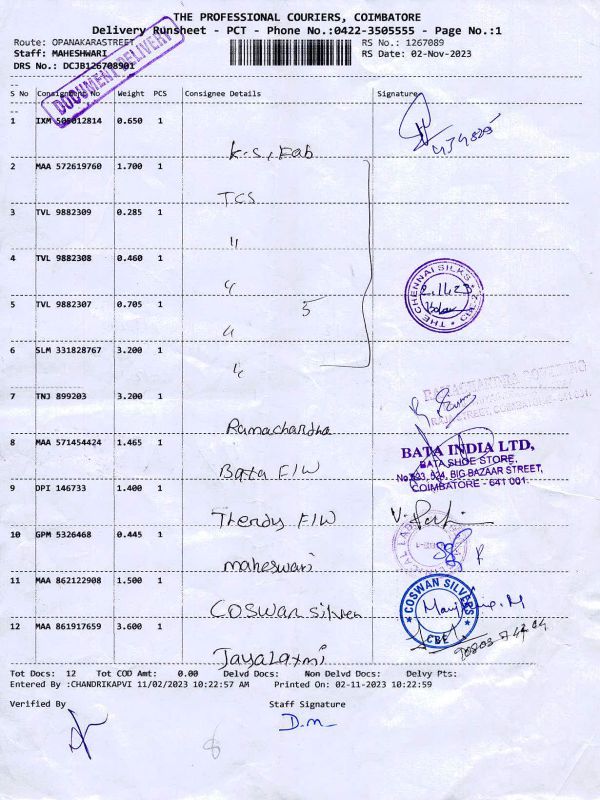 THE PROFESSIONAL COURIERS, COIMBATORE
Delivery Runsheet - PCT - Phone No.:0422-3505555 - Page No.:1
Route: OPANAKARASTREET
RS No.: 1267089
Staff: MAHESHWARI
RS Date: 02-Nov-2023
DRS No.: DCJB126708901
DOCUMENT DELIVERY
S No Consignment No Weight PCS Consignee Details Signature
1 IXM 505012814 0.650 1
K.S, Fab
2 MAA 572619760 1.700 1
TCS
3 TVL 9882309 0.285 1
"
4 TVL 9882308 0.460 1
"
THE CHENNAI SILKS
2.11.23
CBE-2
5 TVL 9882307 0.705 1
"
5
6 SLM 331828767 3.200 1
"
7 TNJ 899203 3.200 1
Ramachandra
8 MAA 571454424 1.465 1
BATA INDIA LTD,
BATA SHOE STORE,
No.523, 524, BIG BAZAAR STREET,
COIMBATORE - 641 001.
Bata F/W
9 DPI 146733 1.400 1
Trendy F/W
10 GPM 5326468 0.445 1
maheswari
11 MAA 862122908 1.500 1
COSWAN SILVERS
CBE-1
Coswan silver
12 MAA 861917659 3.600 1
Jayalaxmi
Tot Docs: 12 Tot COD Amt: 0.00 Delvd Docs: Non Delvd Docs: Delvy Pts:
Entered By :CHANDRIKAPVI 11/02/2023 10:22:57 AM Printed On: 02-11-2023 10:22:59
Verified By
Staff Signature
D.M